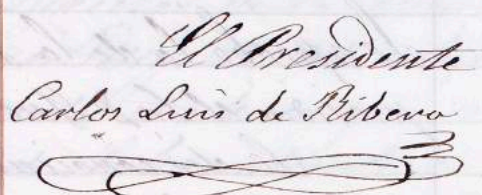 El Presidente
Carlos Luis de Ribera